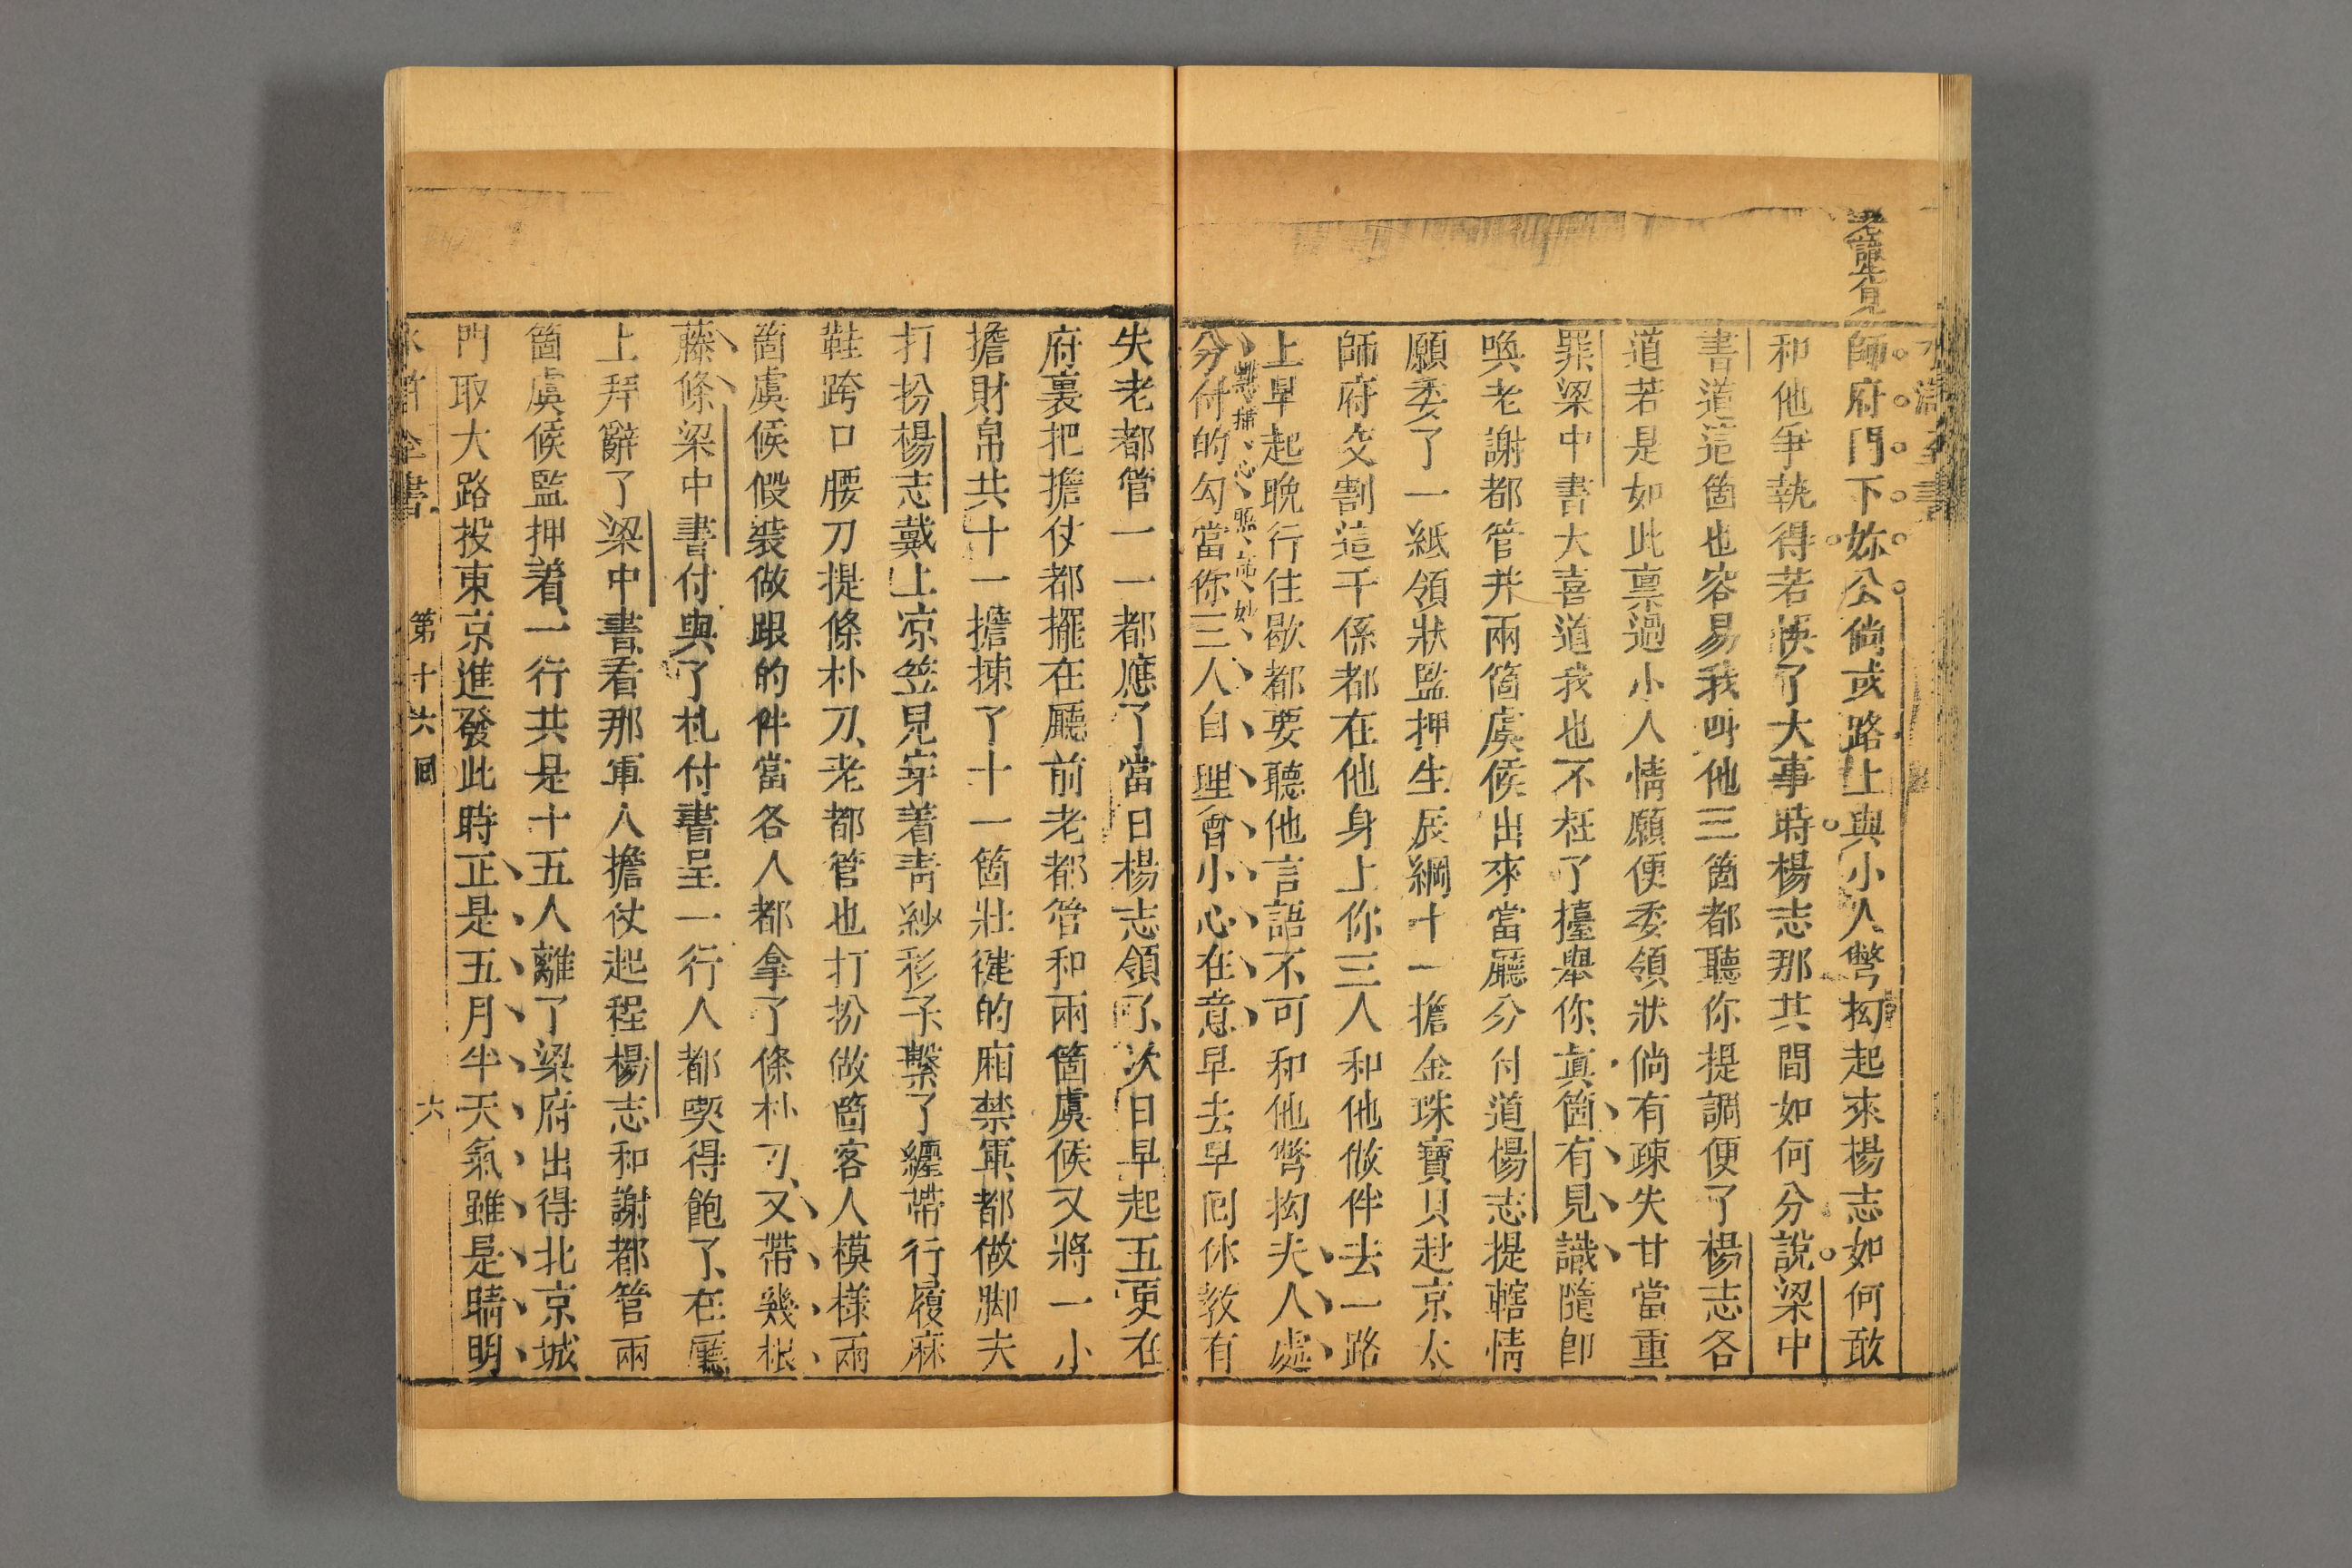 水滸全書
老謀先見
師府門下妳公倘或路上與小人彆拗起來楊志如何敢
和他爭執得若悞了大事時楊志那其間如何分說梁中
書道這箇也容易我叫他三箇都聽你提調便了楊志答
道若是如此稟過小人情願便委領狀倘有疎失甘當重
罪梁中書大喜道我也不枉了擡舉你眞箇有見識隨卽
喚老謝都管并兩箇虞候出來當廳分付道楊志提轄情
願委了一紙領狀監押生辰綱十一擔金珠寶貝赴京太
師府交割這干係都在他身上你三人和他做伴去一路
上早起晚行住歇都要聽他言語不可和他彆拗夫人處
分付的勾當你三人自理會小心在意早去早囘休教有
失老都管一一都應了當日楊志領了次日早起五更在
府裏把擔仗都擺在廳前老都管和兩箇虞候又將一小
擔財帛共十一擔揀了十一箇壯健的廂禁軍都做脚夫
打扮楊志戴上凉笠兒穿着靑紗衫子繫了纏帶行履麻
鞋跨口腰刀提條朴刀老都管也打扮做箇客人模樣兩
箇虞候假裝做跟的伴當各人都拿了條朴刀又帶幾根
藤條梁中書付與了札付書呈一行人都喫得飽了在廳
上拜辭了梁中書看那軍人擔仗起程楊志和謝都管兩
箇虞候監押着一行共是十五人離了梁府出得北京城
門取大路投東京進發此時正是五月半天氣雖是晴明
水滸全書　第十六回　六